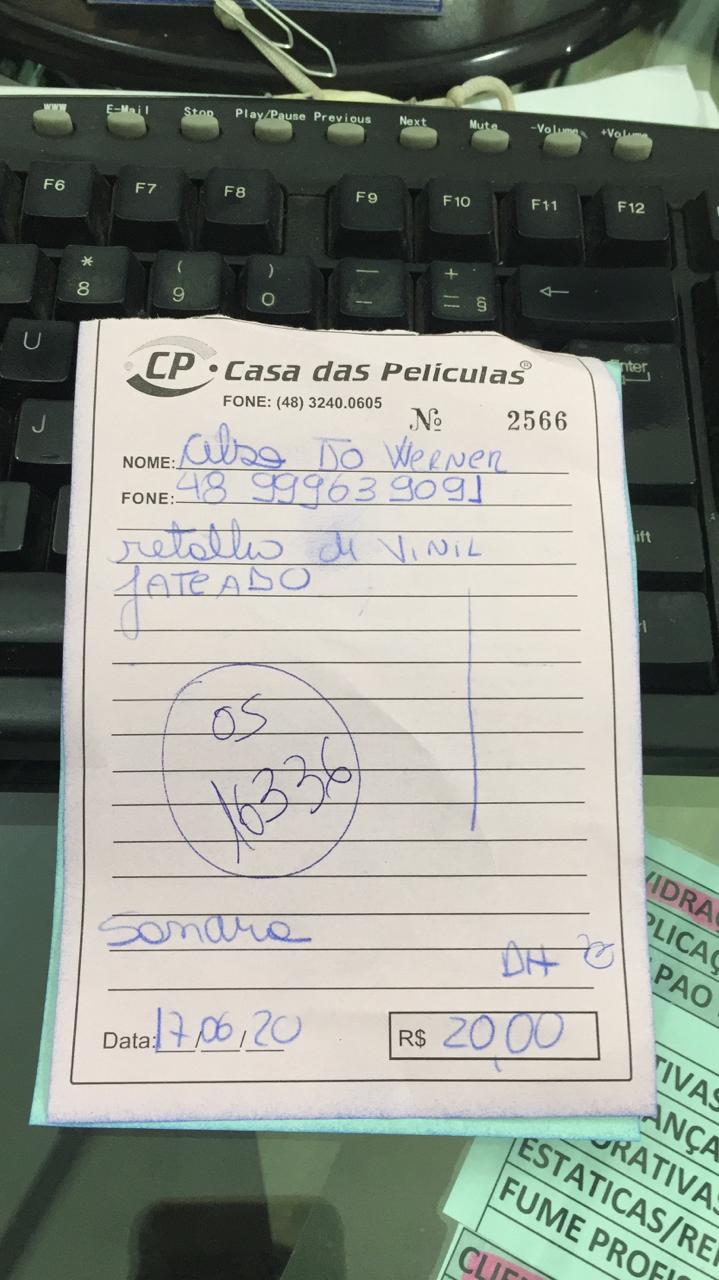 WWW E-Mail Stop Play/Pause Previous Next Mute -Volume +Volume
F6 F7 F8 F9 F10 F11 F12
* ( ) — +
8 9 0 — = § ←
U Enter
J
CP · Casa das Películas®
FONE: (48) 3240.0605
Nº 2566
NOME: Werner
FONE: 48 999639091
retalho di VINIL
JATEADO
OS
16336
Sandra
DH
Data: 17/06/20 R$ 20,00
ESTATICAS/RE
FUME PROFI